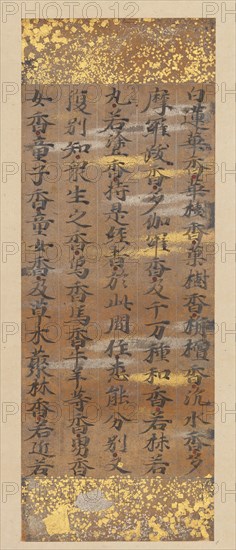 白蓮華香華樹香菓樹香栴檀香沉水香多
摩羅跋香多伽羅香及千万種和香若秣若
丸若塗香持是經者於此間住悉能分別又
復別知衆生之香烏香馬香牛羊等香男香
女香童子香童女香及草木藂林香若近若